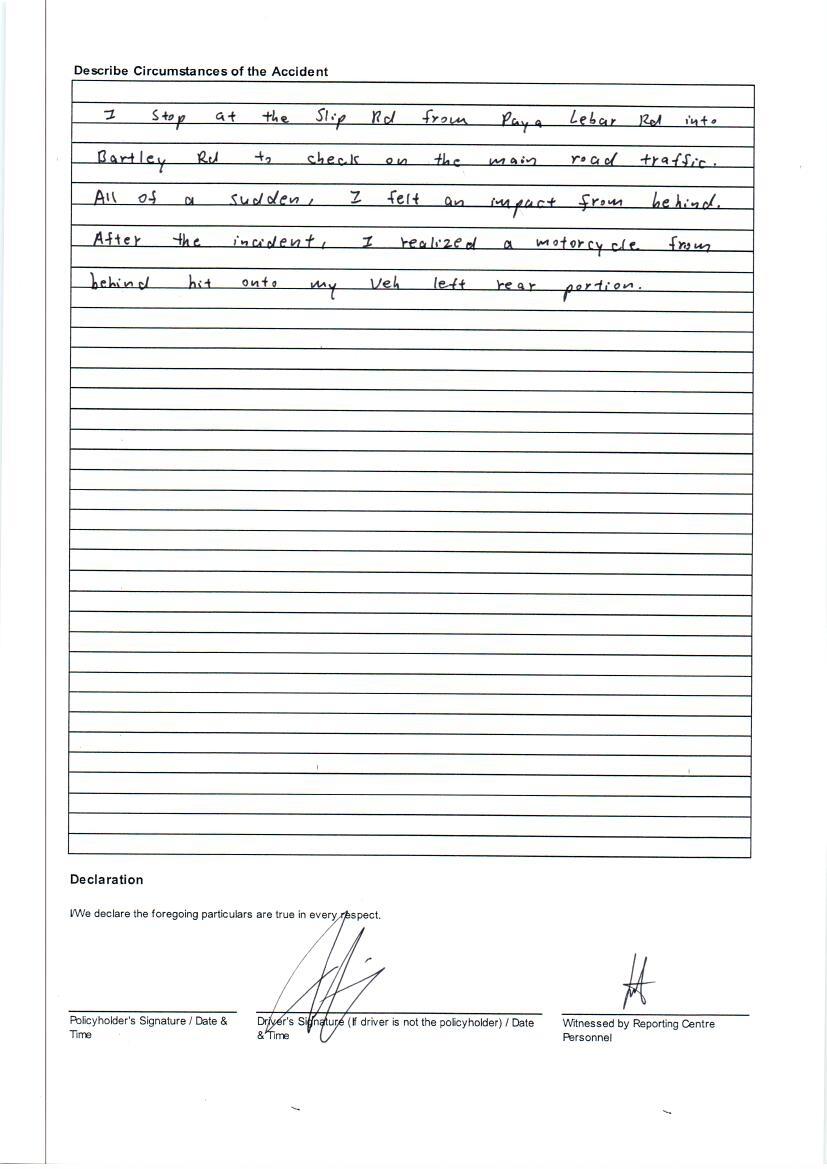 Describe Circumstances of the Accident
I stop at the Slip Rd from Paya Lebar Rd into
Bartley Rd to check on the main road traffic.
All of a sudden, I felt an impact from behind.
After the incident, I realized a motorcycle from
behind hit onto my veh left rear portion.
Declaration
I/We declare the foregoing particulars are true in every respect.
Policyholder's Signature / Date &
Time
Driver's Signature (If driver is not the policyholder) / Date
& Time
Witnessed by Reporting Centre
Personnel